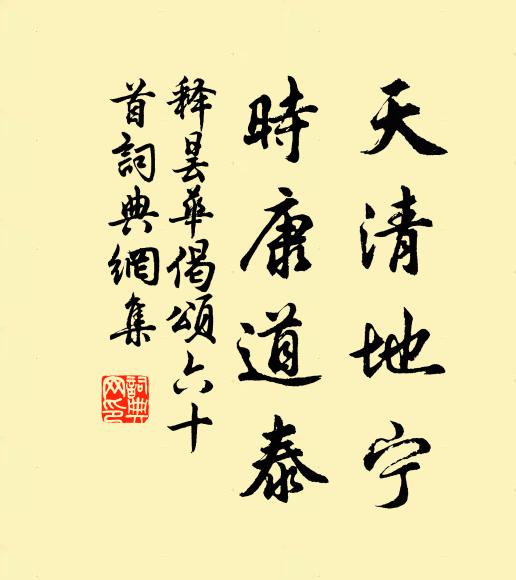 天清地宁
時康道泰
释曇華偈頌六十
首詞典網集
詞典
网印